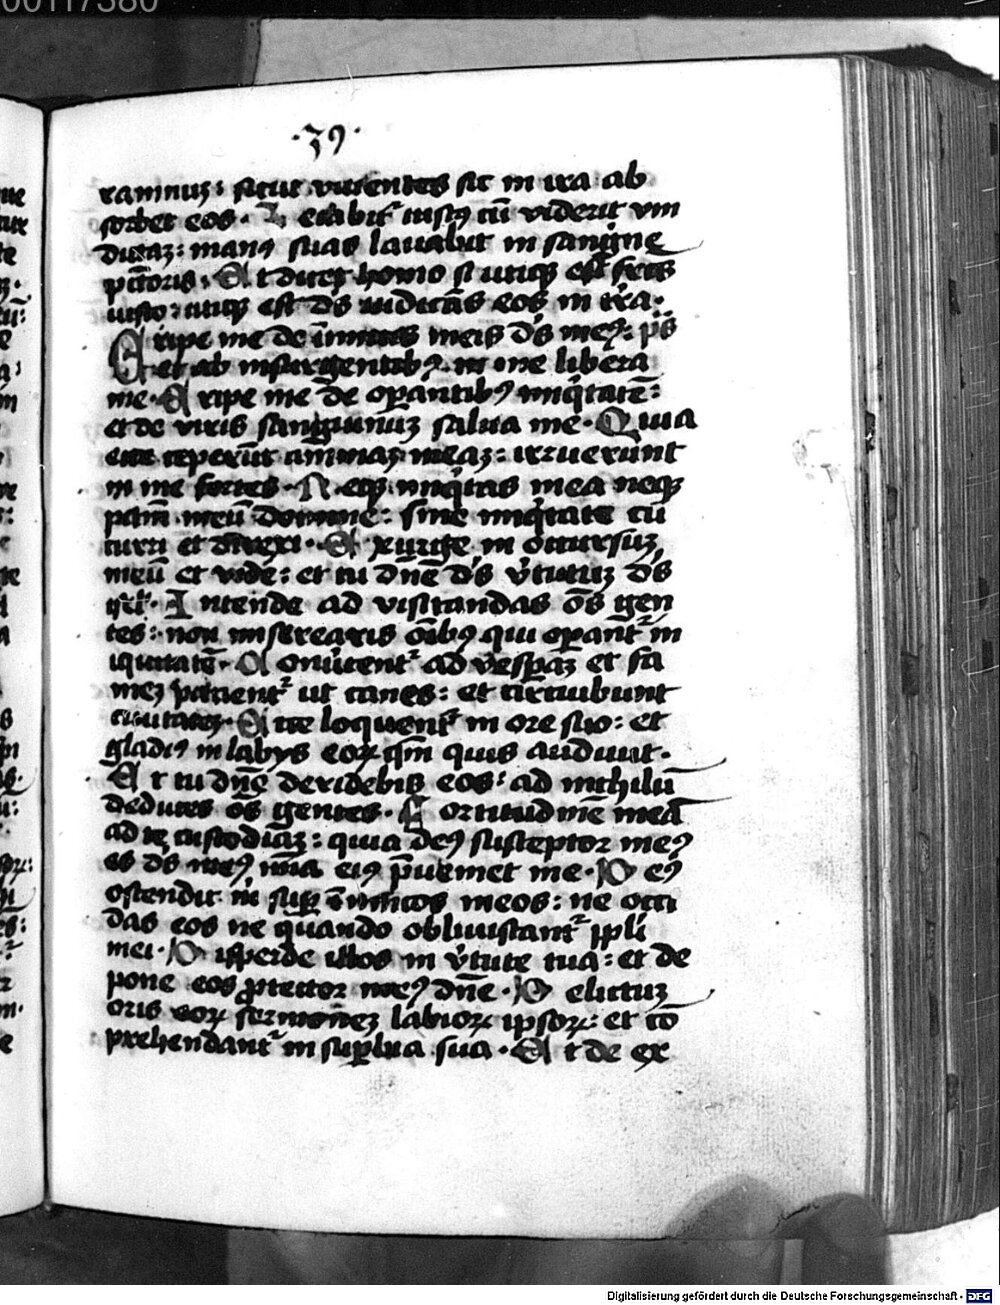 00117380
·39·
ramnuz: sicut viuentes sic in ira ab
sorbet eos. Letabit᷑ iustꝰ cũ viderit vin
dictaz: manꝰ suas lauabit in sangine
pctõris. Et dicet homo si utiqꝫ est fructꝰ
iusto: utiqꝫ est dẽs iudicãs eos in tẽra.
Eripe me de inimicis meis dẽs meꝰ: ⁊
et ab insurgentibꝰ in me libera
me. Eripe me de operantibꝰ iniqͥtatẽ:
et de viris sanguinuz salua me. Quia
ecce ceperũt animaz meaz: irruerunt
in me fortes. Neqꝫ iniqͥtas mea neqꝫ
pctm̃ meũ domine: sine iniqͥtate cu
curri et direxi. Exurge in occursuz
meũ et vide: et tu dñe dẽs v̾tutuz dẽs
isrl̃. Intende ad visitandas oẽs gen
tes: non miserearis oĩbꝰ qui operant᷑ in
iquitatẽ. Conũtent᷑ ad vesperaz et fa
mez patient᷑ ut canes: et circuibunt
ciuitatez. Ecce loquent᷑ in ore suo: et
gladiꝰ in labijs eoꝝ qm̃ quis audiuit.
Et tu dñe deridebis eos: ad nichilũ
deduces oẽs gentes. Fortitudinẽ meã
ad te custodiaz: quia deꝰ susceptor meꝰ
es dẽs meꝰ mĩa eiꝰ p̃ueniet me. Deꝰ
ostendit m̃ sup̲ inimicos meos: ne occi
das eos ne quando obliuiscant᷑ ppl̃i
mei. Disperde illos in v̾tute tua: et de
pone eos ꝓtector meꝰ dñe. Delictuz
oris eoꝝ sermonez labioꝝ ipsoꝝ: et cõ
prehendant᷑ in sup̲bia sua. Et de ex
Digitalisierung gefördert durch die Deutsche Forschungsgemeinschaft - DFG